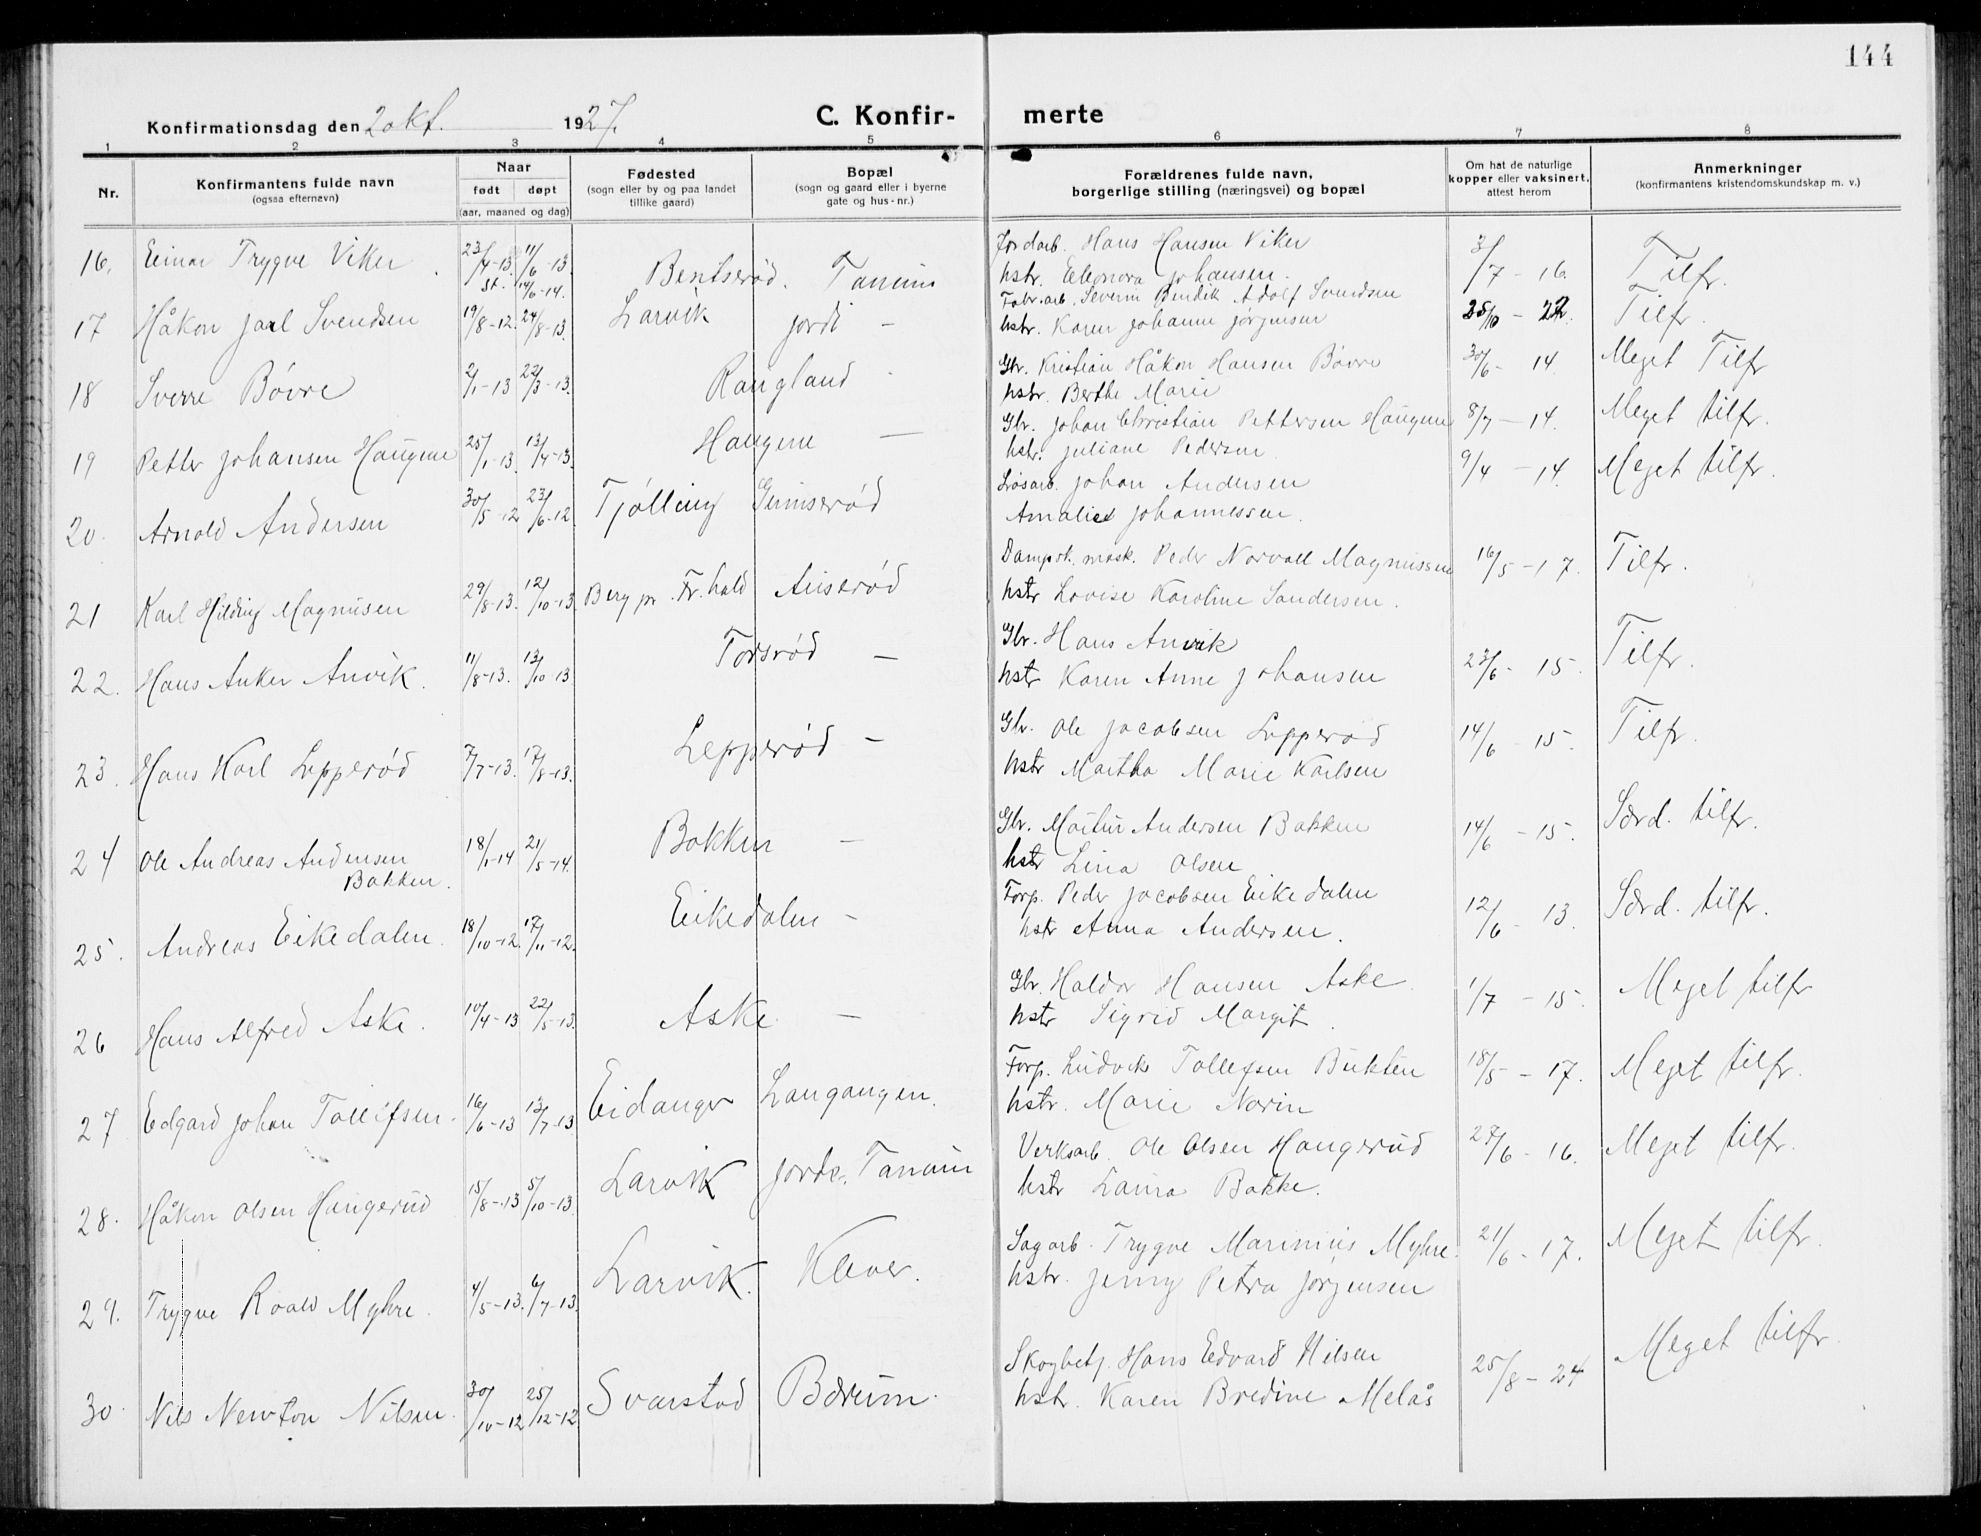 144
Konfirmationsdag den 2 okt. 1927.
C. Konfir- merte
1 2 3 4 5 6 7 8
Nr.
Konfirmantens fulde navn
(ogsaa efternavn)
Naar
født døpt
(aar, maaned og dag)
Fødested
(sogn eller by og paa landet
tillike gaard)
Bopæl
(sogn og gaard eller i byerne
gate og hus-nr.)
Forældrenes fulde navn,
borgerlige stilling (næringsvei) og bopæl
Om hat de naturlige
kopper eller vaksinert,
attest herom
Anmerkninger
(konfirmantens kristendomskundskap m. v.)
16. Einar Trygve Viker. 23/4-13. 11/6-13. St. 14/6-14. Bentserød. Tanum Jordarb. Hans Hansen Viker 3/7-16. Tilfr.
hstr. Eleonora Johansen.
17 Håkon Jarl Svendsen 19/8-12. 24/8-13. Larvik Jordi - Fabr.arb. Severin Bendik Adolf Svendsen 25/10-22. Tilfr.
hstr. Karen Johanne Jørgensen
18 Sverre Bøvre 2/1-13 22/3-13. Rangland - Gbr. Kristian Håkon Hansen Bøvre 30/6-14. Meget Tilfr
hstr. Berthe Marie
19 Petter Johansen Haugene 25/1-13. 13/4-13. Haugene - Gbr. Johan Christian Pettersen Haugene 8/7-14. Meget tilfr.
hstr. Juliane Pedersen
20. Arnold Andersen 30/5-12 23/6-12. Tjølling Gunserød Løsarb. Johan Andersen 9/4-14. Meget tilfr.
Amalie Johannessen.
21 Karl Hilding Magnusen 29/8-13. 12/10-13 Berg pr. Fr.hald Auserød Dampsk. mask. Peder Norvall Magnussen 16/5-17. Tilfr.
hstr Lovise Karoline Sandersen.
22. Hans Anker Anvik. 11/8-13. 13/10 13 Torsrød - Gbr. Hans Anvik 23/6-15. Tilfr.
hstr Karen Anne Johansen
23. Hans Karl Lepperød 7/7-13. 17/8-13. Lepperød - Gbr. Ole Jacobsen Lepperød 14/6-15. Tilfr.
hstr Martha Marie Karlsen
24 Ole Andreas Andersen 18/1-14 21/5-14. Bakken - Gbr. Martin Andersen Bakken 14/6-15. Særd. tilfr.
Bakken.
hstr Lina Olsen
25. Andreas Eikedalen. 18/10-12. 17/11-12. Eikedalen - Forp. Peder Jacobsen Eikedalen 12/6-13. Særd. tilfr.
hstr Anna Andersen.
26 Hans Alfred Aske. 10/4-13 22/5-13. Aske. - Gbr. Haldor Hansen Aske. 1/7-15. Meget tilfr
hstr Sigrid Margit.
27 Edgard Johan Tollefsen. 16/6-13 13/7-13 Eidanger Langangen. Forp. Ludvik Tollefsen Bukten 18/5-17. Meget tilfr.
hstr. Marie Norin
28. Håkon Olsen Haugerud 15/8-13 5/10-13. Larvik Jorde, Tanum Verksarb. Ole Olsen Haugerud 27/6-16. Meget tilfr.
hstr Laura Bakke.
29. Trygve Roald Myhre. 4/5-13. 6/7-13. Larvik. Klever. Sagarb. Trygve Marinius Myhre. 21/6-17. Meget tilfr.
hstr. Jenny Petra Jørgensen
30. Nils Newton Nilsen. 30/10-12 25/12-12 Svarstad Bærum. Skogbetj. Hans Edvard Nilsen 25/8-24 Meget tilfr.
hstr. Karen Bredine Melås